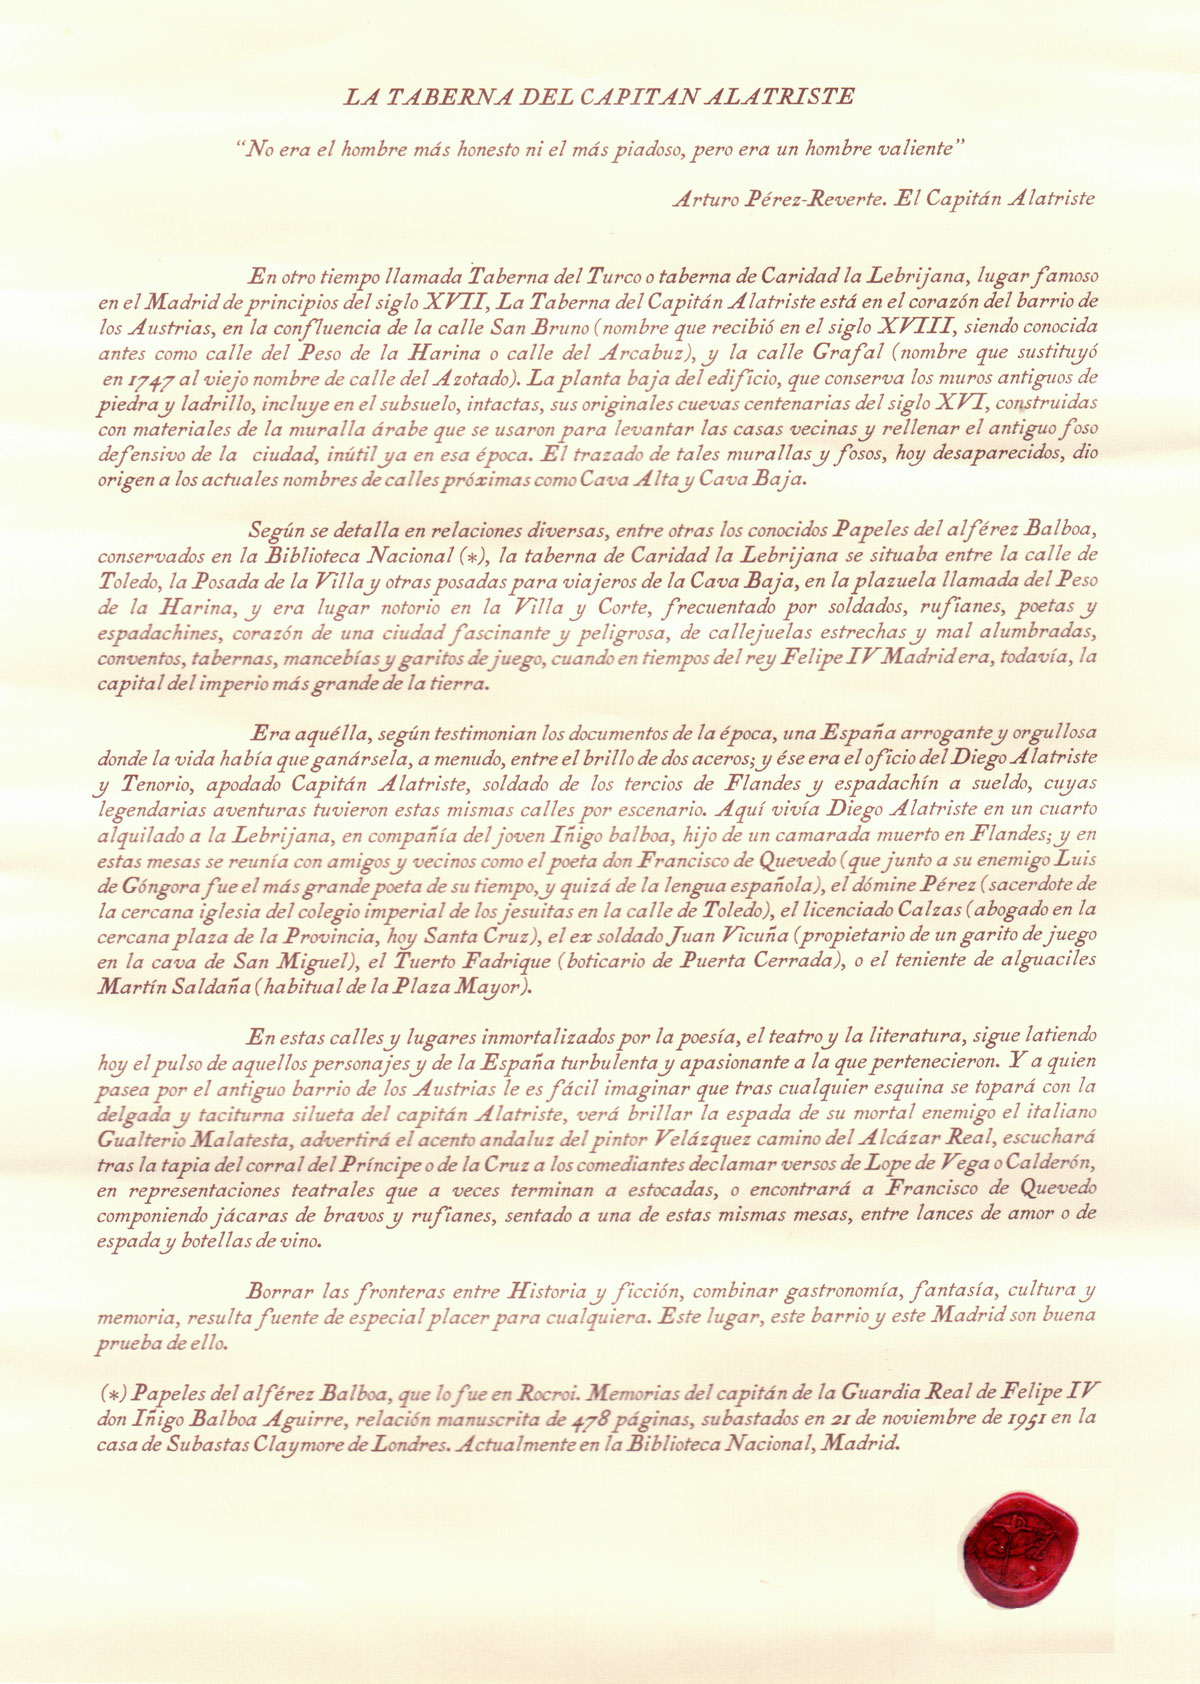 LA TABERNA DEL CAPITAN ALATRISTE
“No era el hombre más honesto ni el más piadoso, pero era un hombre valiente”
Arturo Pérez-Reverte. El Capitán Alatriste
En otro tiempo llamada Taberna del Turco o taberna de Caridad la Lebrijana, lugar famoso
en el Madrid de principios del siglo XVII, La Taberna del Capitán Alatriste está en el corazón del barrio de
los Austrias, en la confluencia de la calle San Bruno (nombre que recibió en el siglo XVIII, siendo conocida
antes como calle del Peso de la Harina o calle del Arcabuz), y la calle Grafal (nombre que sustituyó
en 1747 al viejo nombre de calle del Azotado). La planta baja del edificio, que conserva los muros antiguos de
piedra y ladrillo, incluye en el subsuelo, intactas, sus originales cuevas centenarias del siglo XVI, construidas
con materiales de la muralla árabe que se usaron para levantar las casas vecinas y rellenar el antiguo foso
defensivo de la ciudad, inútil ya en esa época. El trazado de tales murallas y fosos, hoy desaparecidos, dio
origen a los actuales nombres de calles próximas como Cava Alta y Cava Baja.
Según se detalla en relaciones diversas, entre otras los conocidos Papeles del alférez Balboa,
conservados en la Biblioteca Nacional (*), la taberna de Caridad la Lebrijana se situaba entre la calle de
Toledo, la Posada de la Villa y otras posadas para viajeros de la Cava Baja, en la plazuela llamada del Peso
de la Harina, y era lugar notorio en la Villa y Corte, frecuentado por soldados, rufianes, poetas y
espadachines, corazón de una ciudad fascinante y peligrosa, de callejuelas estrechas y mal alumbradas,
conventos, tabernas, mancebías y garitos de juego, cuando en tiempos del rey Felipe IV Madrid era, todavía, la
capital del imperio más grande de la tierra.
Era aquélla, según testimonian los documentos de la época, una España arrogante y orgullosa
donde la vida había que ganársela, a menudo, entre el brillo de dos aceros; y ése era el oficio del Diego Alatriste
y Tenorio, apodado Capitán Alatriste, soldado de los tercios de Flandes y espadachín a sueldo, cuyas
legendarias aventuras tuvieron estas mismas calles por escenario. Aquí vivía Diego Alatriste en un cuarto
alquilado a la Lebrijana, en compañía del joven Iñigo balboa, hijo de un camarada muerto en Flandes; y en
estas mesas se reunía con amigos y vecinos como el poeta don Francisco de Quevedo (que junto a su enemigo Luis
de Góngora fue el más grande poeta de su tiempo, y quizá de la lengua española), el dómine Pérez (sacerdote de
la cercana iglesia del colegio imperial de los jesuitas en la calle de Toledo), el licenciado Calzas (abogado en la
cercana plaza de la Provincia, hoy Santa Cruz), el ex soldado Juan Vicuña (propietario de un garito de juego
en la cava de San Miguel), el Tuerto Fadrique (boticario de Puerta Cerrada), o el teniente de alguaciles
Martín Saldaña (habitual de la Plaza Mayor).
En estas calles y lugares inmortalizados por la poesía, el teatro y la literatura, sigue latiendo
hoy el pulso de aquellos personajes y de la España turbulenta y apasionante a la que pertenecieron. Y a quien
pasea por el antiguo barrio de los Austrias le es fácil imaginar que tras cualquier esquina se topará con la
delgada y taciturna silueta del capitán Alatriste, verá brillar la espada de su mortal enemigo el italiano
Gualterio Malatesta, advertirá el acento andaluz del pintor Velázquez camino del Alcázar Real, escuchará
tras la tapia del corral del Príncipe o de la Cruz a los comediantes declamar versos de Lope de Vega o Calderón,
en representaciones teatrales que a veces terminan a estocadas, o encontrará a Francisco de Quevedo
componiendo jácaras de bravos y rufianes, sentado a una de estas mismas mesas, entre lances de amor o de
espada y botellas de vino.
Borrar las fronteras entre Historia y ficción, combinar gastronomía, fantasía, cultura y
memoria, resulta fuente de especial placer para cualquiera. Este lugar, este barrio y este Madrid son buena
prueba de ello.
(*) Papeles del alférez Balboa, que lo fue en Rocroi. Memorias del capitán de la Guardia Real de Felipe IV
don Iñigo Balboa Aguirre, relación manuscrita de 478 páginas, subastados en 21 de noviembre de 1951 en la
casa de Subastas Claymore de Londres. Actualmente en la Biblioteca Nacional, Madrid.